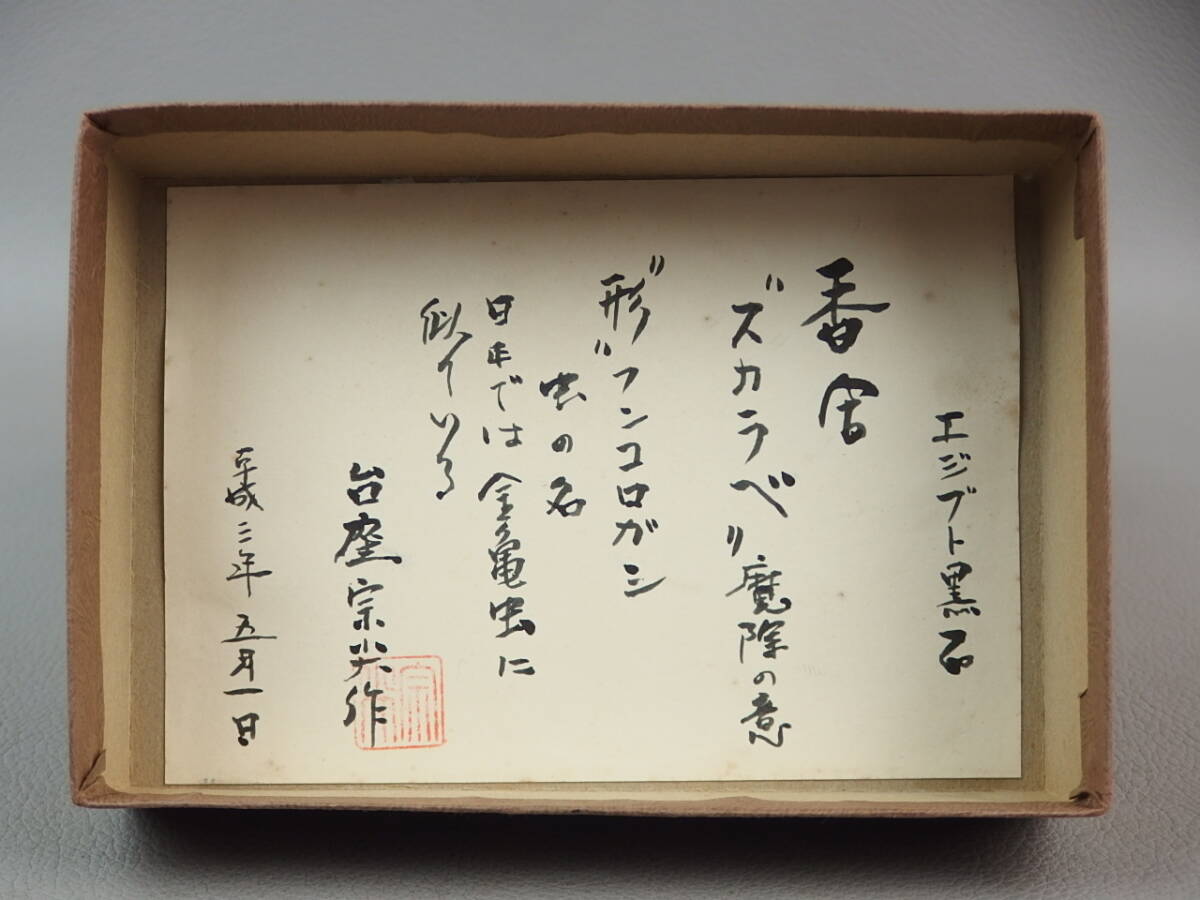 エジプト黒石
香
"スカラベ"魔除の意
"形"フンコロガシ
虫の名
日本では金亀虫に
似ている
台座宗尖作
平成二年五月一日